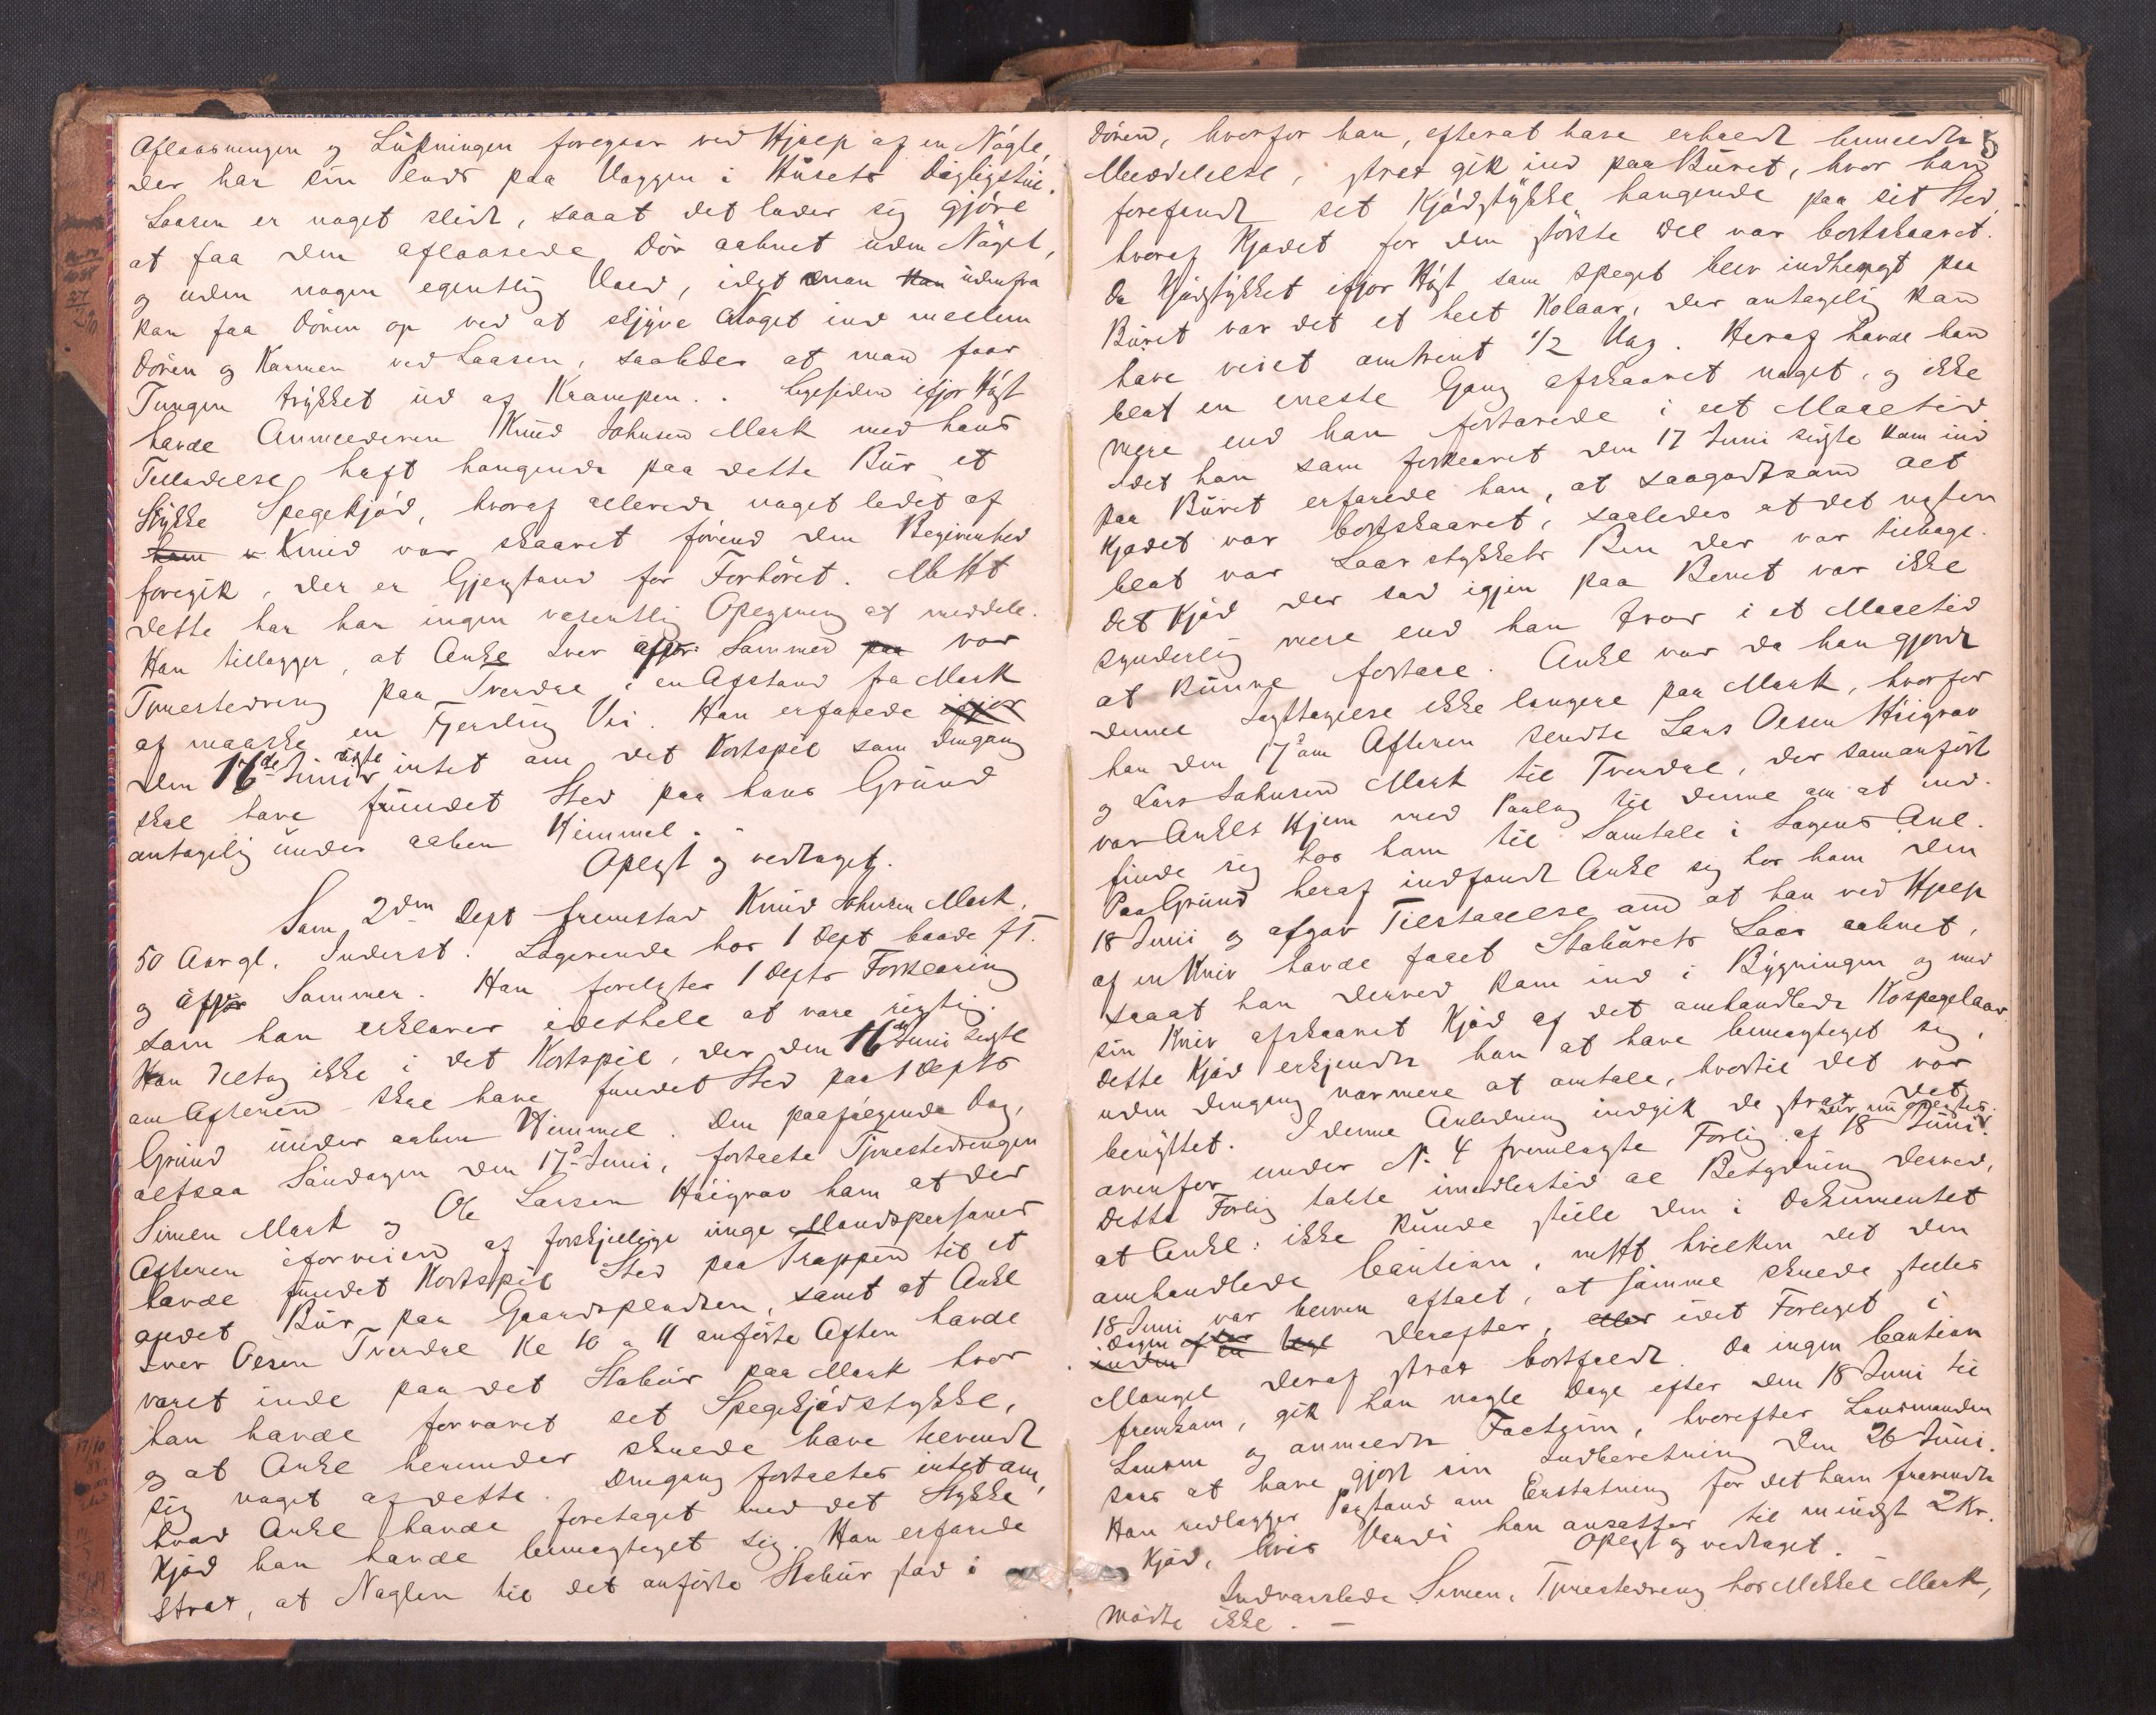 Aflaasningen og Lükningen foregaar ved Hjælp af en Nøgle,
der har sin Plads paa Væggen i Hüsets Dagligstüe.
Laasen er noget slidt, saaat det lader sig gjöre
at faa den aflaasede Dör aabnet üden Nögel,
og uden nogen egentlig Vold, idet man üdenfra
kan faa Dören op ved at skyve Noget ind mellem
Dören og Karmen ved Laasen, saaledes at man faar
Tungen trykket üd af Krampen. . Ligesiden ifjor Höst
havde Anmelderen Knüd Johnsen Mark med hans
Tilladelse haft hængende paa dette Bür et
Stykke Spegekjöd, hvoraf allerede noget ledet af
Knud var skaaret förend den Begivenhed
foregik, der er Gjenstand for Forhöret. M. Ht
dette har han ingen væsentlig Oplysning at meddele.
Han tillægger, at Ankl Iver Sommer var
Tjenestedreng paa Tvendal i en Afstand fra Mark
af maaske en Fjerding Vei. Han erfarede
den 16de Juni sidste intet om det Kortspil som dengang
skal have fundet Sted paa hans Gründ
antagelig ünder aaben Himmel. -
Oplæst og vedtaget.
Som 2den Dept fremstod Knüd Johnsen Mark,
50 Aar gl. Inderst. Logerende hos 1 Dept baade f.T.
og Sommer. Han forelæstes 1 Depts Forklaring
som han erklærer idethele at være rigtig.
Han deltog ikke i det Kortspil, der den 16de Juni sidste
om Aftenen skal have fundet Sted paa 1 Depts
Gründ ünder aaben Himmel. Den paafølgende Dag,
altsaa Söndagen den 17de Juni, fortalte Tjenestedrengen
Simen Mark og Ole Larsen Höigrav ham at der
Aftenen iforveien af forskjellige unge Mandspersoner
havde fundet Kortspil Sted paa Trappen til et
andet Bür paa Gaardspladsen, samt at Ankl
Iver Olsen Tvendal Kl 10 a 11 anförte Aften havde
været inde paa det Stabür paa Mark hvor
han havde forvaret sit Spegekjödstykke,
og at Ankl herunder skulde have tilvendt
sig noget af dette. Dengang fortaltes intet om,
hvad Ankl havde foretaget med det Stykke
Kjöd han havde bemægtiget sig. Han erfarede
strax, at Nøglen til det anförte Stabür stod i
5
Dören, hvorfor han, efterat have erholdt bemeldte
Meddelelse, strax gik ind paa Büret, hvor han
forefandt sit Kjödstykke hængende paa sit Sted,
hvoraf Kjødet for den störste Del var bortskaaret.
Da Kjödstykket ifjor Höst som speget blev indhængt paa
Büret var det et helt Kolaar, der antagelig kan
have veiet omtrent 1/2 Vog. Heraf havde han
blot en eneste Gang afskaaret noget, og ikke
mere end han fortærede i eet Maaltid
Idet han som forklaret den 17 Juni sidste kom ind
paa Büret erfarede han, at saagodtsom alt
Kjødet var bortskaaret, saaledes at det næsten
blot var Laarstykkets Ben der var tilbage.
Det Kjöd der sad igjen paa Benet var ikke
synderlig mere end han tror i et Maaltid
at kunne fortære. Ankl var da han gjorde
denne Iagttagelse ikke længere paa Mark, hvorfor
han den 17de om Aftenen sendte Lars Olsen Höigrav
og Lars Johnsen Mark til Tvendal, der som anfört
var Ankls Hjem med Paalæg til denne om at ind-
finde sig hos ham til Samtale i Sagens Anl.
Paa Gründ heraf indfandt Ankl sig hos ham den
18 Juni og afgav Tilstaaelse om at han ved Hjælp
af en Kniv havde faaet Stabürets Laas aabnet,
saaat han derved kom ind i Bygningen og med
sin Kniv afskaaret Kjöd af det omhandlede Kospegelaar.
Dette Kjöd erkjendte han at have bemægtiget sig,
uden dengang nærmere at omtale, hvortil det var
benyttet. I denne Anledning indgik de strax det
ovenfor under N. 4 fremlagte Forlig af 18 Juni.
Dette Forlig tabte imidlertid al Betydning derved,
at Ankl: ikke kunde stille den i Dokumentet
omhandlede Caution, m. Ht hvilken det den
18 Juni var bleven aftalt, at samme skulde stilles
Dagen derefter, idet Forliget i
Mangel deraf strax bortfaldt. Da ingen Caution
fremkom, gik han nogle Dage efter den 18 Juni til
Lensm og anmeldte Factum, hvorefter Lensmanden
sees at have gjort sin Indberetning den 26 Juni.
Han nedlægger Paastand om Erstatning for det ham fravendte
Kjöd, hvis Værdi han ansætter til mindst 2 Kr.
Oplæst og vedtaget.
Indvarslede Simen, Tjenestedreng hos Mikkel Mark,
mödte ikke. -